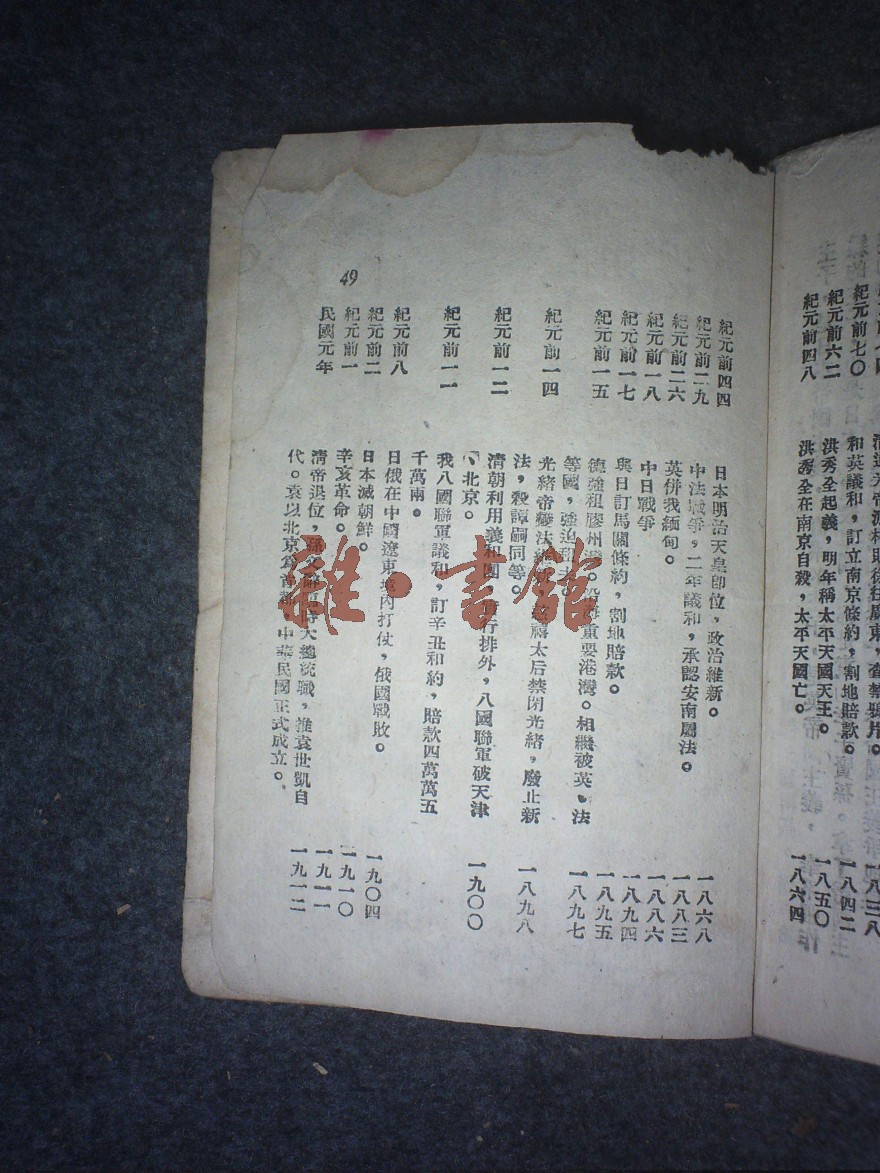 紀元前七〇 和英議和，訂立南京條約，割地賠款。 一八四二
紀元前六二 洪秀全起義，明年稱太平天國天王。 一八五〇
紀元前四八 洪秀全在南京自殺，太平天國亡。 一八六四
紀元前四四 日本明治天皇卽位，政治維新。 一八六八
紀元前二九 中法戰爭，二年議和，承認安南屬法。 一八八三
紀元前二六 英併我緬甸。 一八八六
紀元前一八 中日戰爭 一八九四
紀元前一七 與日訂馬關條約，割地賠款。 一八九五
紀元前一五 德強租膠州灣。重要港灣。相繼被英、法 一八九七
等國，強迫
紀元前一四 光緒帝變法維新，太后禁閉光緒，廢止新 一八九八
法，殺譚嗣同等。
紀元前一二 清朝利用義和團行排外，八國聯軍破天津 一九〇〇
、北京。
紀元前一一 我八國聯軍議和，訂辛丑和約，賠款四萬萬五
千萬兩。
紀元前八 日俄在中國遼東境內打仗，俄國戰敗。 一九〇四
紀元前二 日本滅朝鮮。 一九一〇
紀元前一 辛亥革命。 一九一一
民國元年 清帝退位，孫文辭臨時大總統職，推袁世凱自 一九一二
代。袁以北京爲首都，中華民國正式成立。
49
雜·書館